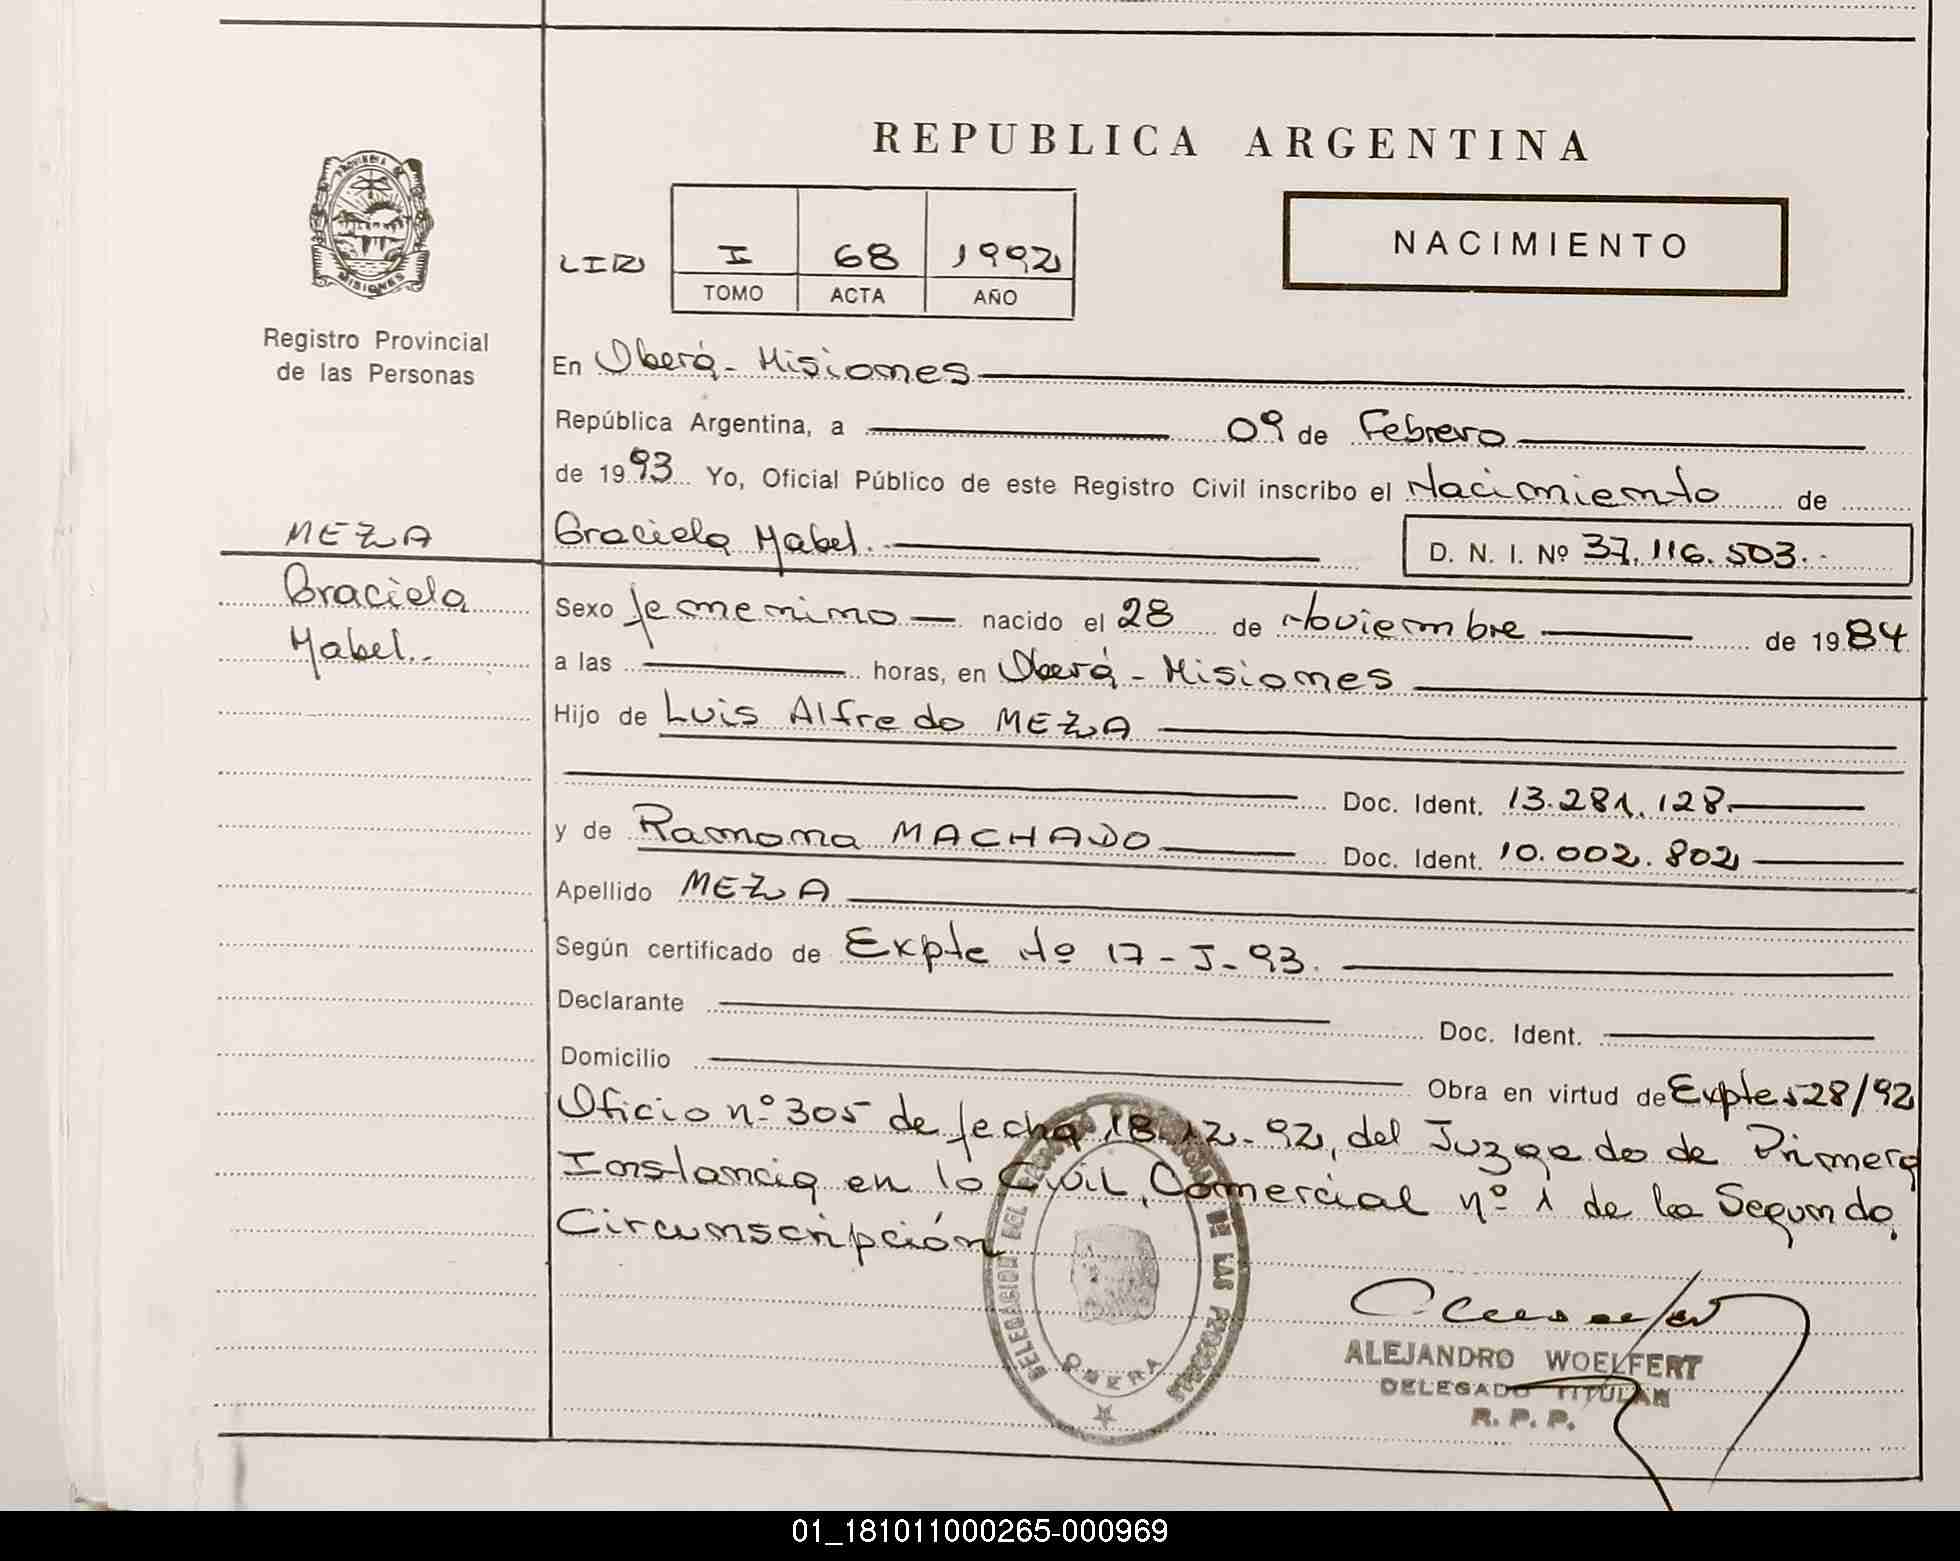 REPUBLICA ARGENTINA
PROVINCIA DE
MISIONES
Registro Provincial
de las Personas
I 68 1992
TOMO ACTA AÑO
NACIMIENTO
En Oberá - Misiones
República Argentina, a 09 de Febrero
de 1993 Yo, Oficial Público de este Registro Civil inscribo el Nacimiento de
MEZA
Graciela
Mabel.
Graciela Mabel. D. N. I. Nº 37.116.503.
Sexo femenino nacido el 28 de Noviembre de 1984
a las horas, en Oberá - Misiones
Hijo de Luis Alfredo MEZA
Doc. Ident. 13.281.128
y de Ramona MACHADO Doc. Ident. 10.002.802
Apellido MEZA
Según certificado de Expte Nº 17-J-93.
Declarante Doc. Ident.
Domicilio Obra en virtud de Expte 528/92
Oficio nº 305 de fecha 18-12-92, del Juzgado de Primera
Instancia en lo Civil, Comercial nº 1 de la Segunda
Circunscripción
DELEGACION DEL REGISTRO PROVINCIAL DE LAS PERSONAS
OBERA
ALEJANDRO WOELFERT
DELEGADO TITULAR
R. P. P.
01_181011000265-000969